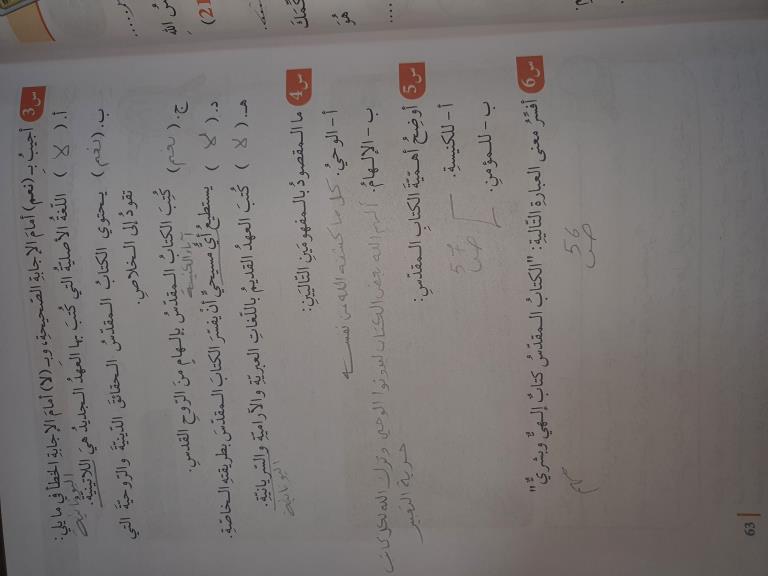 س3 أجيبُ بـ (نعم) أمامَ الإجابةِ الصّحيحةِ، وبـ (لا) أمامَ الإجابةِ الخطأ في ما يلي:
أ. ( لا ) اللّغةُ الأصليّةُ التي كُتبَ بها العهدُ الجديدُ هيَ اللاتينيّة.
اليونانية
ب. (نعم) يحتوي الكتابُ المقدّسُ الحقائقَ الدّينيّةَ والرّوحيّةَ التي
تقودُ إلى الخلاصِ.
ج. (نعم) كُتِبَ الكتابُ المقدّسُ بإلهامٍ منَ الرّوحِ القدسِ.
آباء الكنيسة
د. ( لا ) يستطيعُ أيُّ مسيحيٍّ أنْ يفسّرَ الكتابَ المقدّسَ بطريقتِهِ الخاصّةِ.
هـ. ( لا ) كُتبَ العهدُ القديمُ باللّغاتِ العبريّةِ والآراميّةِ والسّريانيّةِ.
اليونانية
س4 ما المقصودُ بالمفهومَينِ التّاليَينِ:
أ- الوحيُ: كل ما كشفه الله عن نفسه
ب- الإلهامُ: ألهم الله بعض الكتاب ليدونوا الوحي وترك الله لكل كاتب
حرية التعبير
س5 أوضحُ أهمّيّةَ الكتابِ المقدّسِ:
أ- للكنيسةِ.
ب- للمؤمنِ.
ص 57
س6 أفسّرُ معنى العبارةِ التّاليةِ: "الكتابُ المقدّسُ كتابٌ إلهيٌّ وبشريٌّ"
مهم
ص 56
63